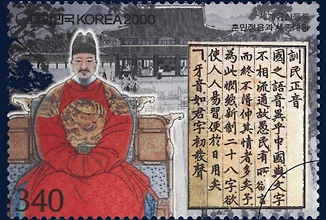 대한민국 KOREA 2000
훈민정음과 세종대왕
訓民正音
國之語音異乎中國與文字
不相流通故愚民有所欲言
而終不得伸其情者多矣予
為此憫然新制二十八字欲
使人人易習便於日用矣
ㄱ牙音如君字初發聲
340